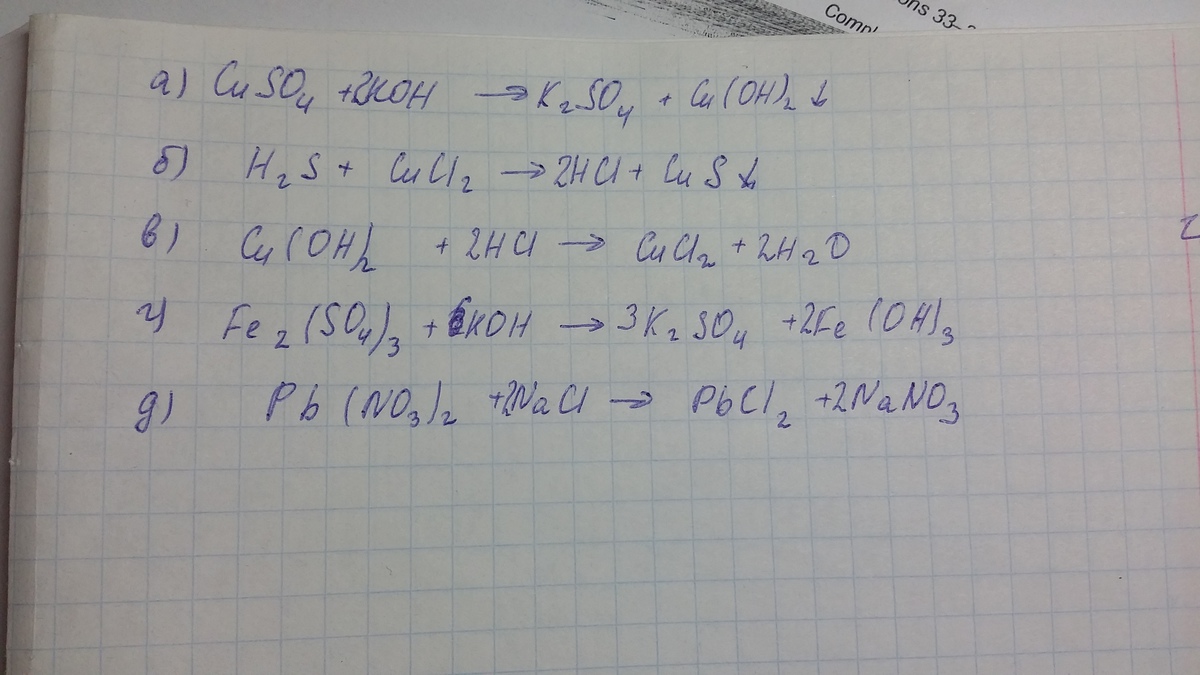 ons 33-
Compl
а) CuSO₄ +2KOH → K₂SO₄ + Cu(OH)₂ ↓
б) H₂S + CuCl₂ → 2HCl + CuS↓
в) Cu(OH)₂ + 2HCl → CuCl₂ + 2H₂O
г) Fe₂(SO₄)₃ + 6KOH → 3K₂SO₄ +2Fe(OH)₃
д) Pb(NO₃)₂ +2NaCl → PbCl₂ +2NaNO₃